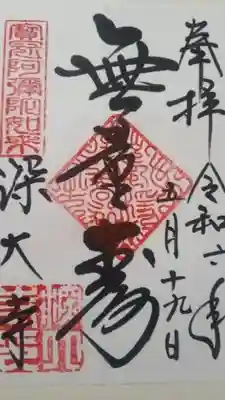 奉拝 令和六年
五月十九日
無量壽
寳冠阿彌陀如来
深大寺